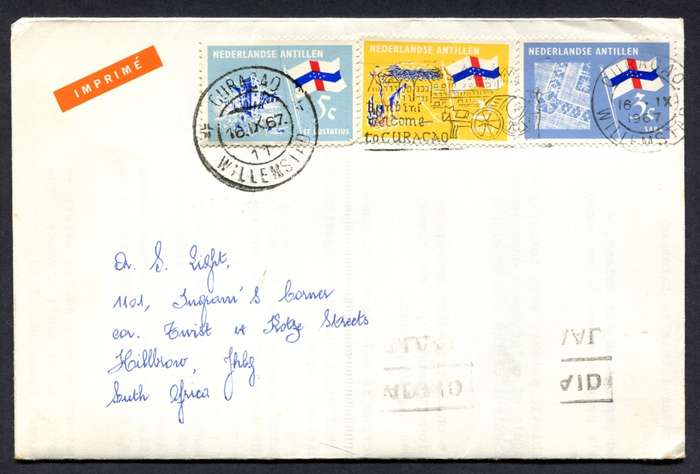 IMPRIMÉ
NEDERLANDSE ANTILLEN
5c
ST EUSTATIUS
NEDERLANDSE ANTILLEN
NEDERLANDSE ANTILLEN
3c
SABA
CURAÇAO
16.IX.67.
11
WILLEMSTAD
Bonbini
welcome
to CURAÇAO
CURAÇAO
16 IX
1967
WILLEMSTAD
Dr. S. Light,
1101, Ingram's Corner
cor. Twist & Kotze Streets
Hillbrow, Jhbg
South Africa